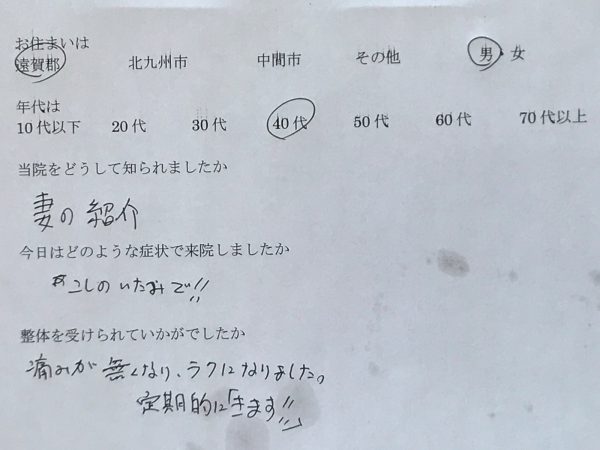 お住まいは
遠賀郡 北九州市 中間市 その他 男・女
年代は
10代以下 20代 30代 40代 50代 60代 70代以上
当院をどうして知られましたか
妻の紹介
今日はどのような症状で来院しましたか
こしのいたみで!!
整体を受けられていかがでしたか
痛みが無くなり、ラクになりました。
定期的に きます!!